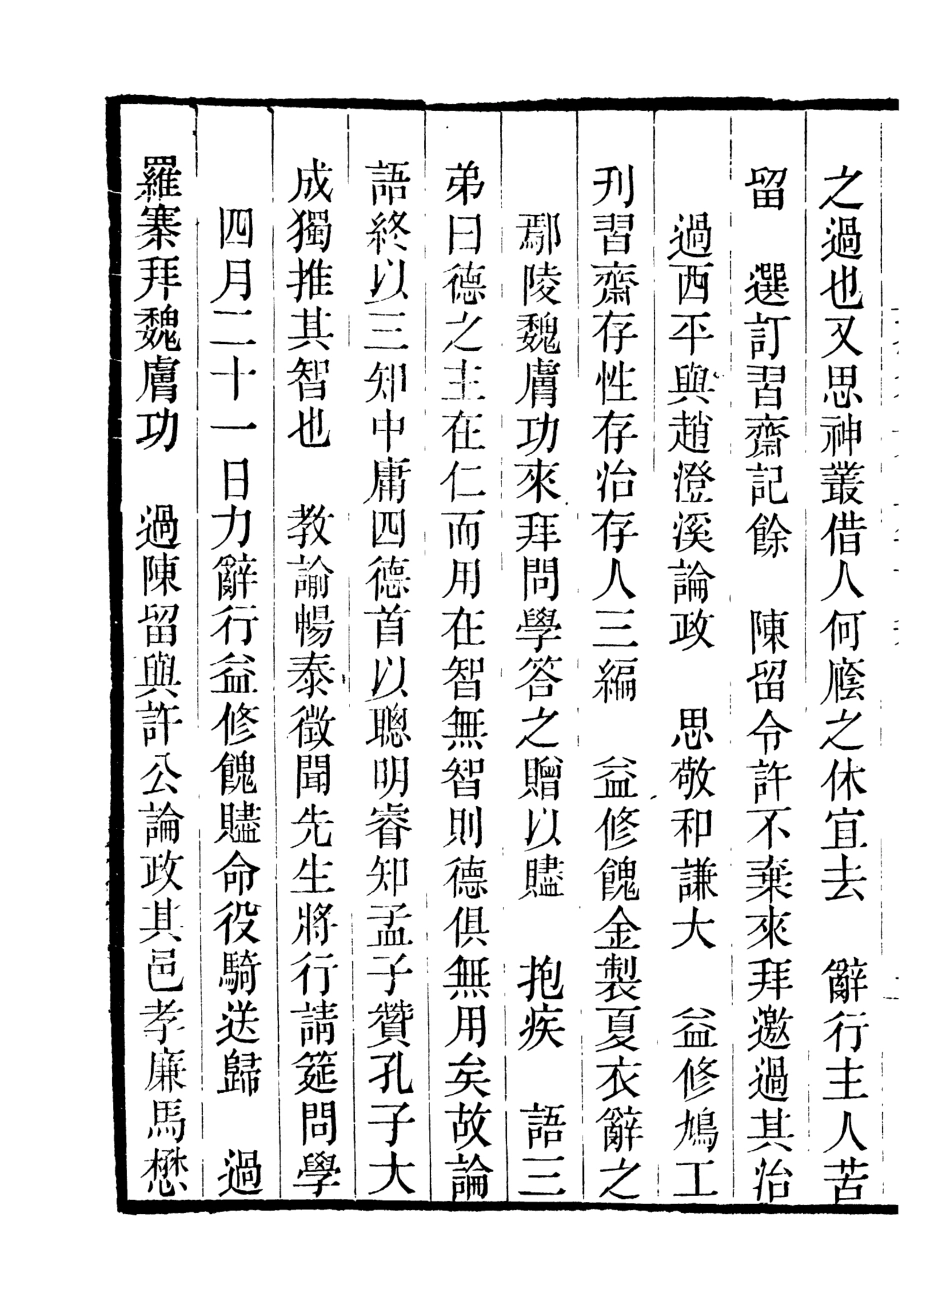 之過也又思神叢借人何廕之休宜去　辭行主人苦
留　選訂習齋記餘　陳留令許不棄來拜邀過其治
過西平與趙澄溪論政　思敬和謙大　益修鳩工
刋習齋存性存治存人三編　益修餽金製夏衣辭之
鄢陵魏膚功來拜問學答之贈以贐　抱疾　語三
弟曰德之主在仁而用在智無智則德俱無用矣故論
語終以三知中庸四德首以聰明睿知孟子贊孔子大
成獨推其智也　教諭暢泰徵聞先生將行請筵問學
四月二十一日力辭行益修餽贐命役騎送歸　過
羅寨拜魏膚功　過陳留與許公論政其邑孝廉馬懋